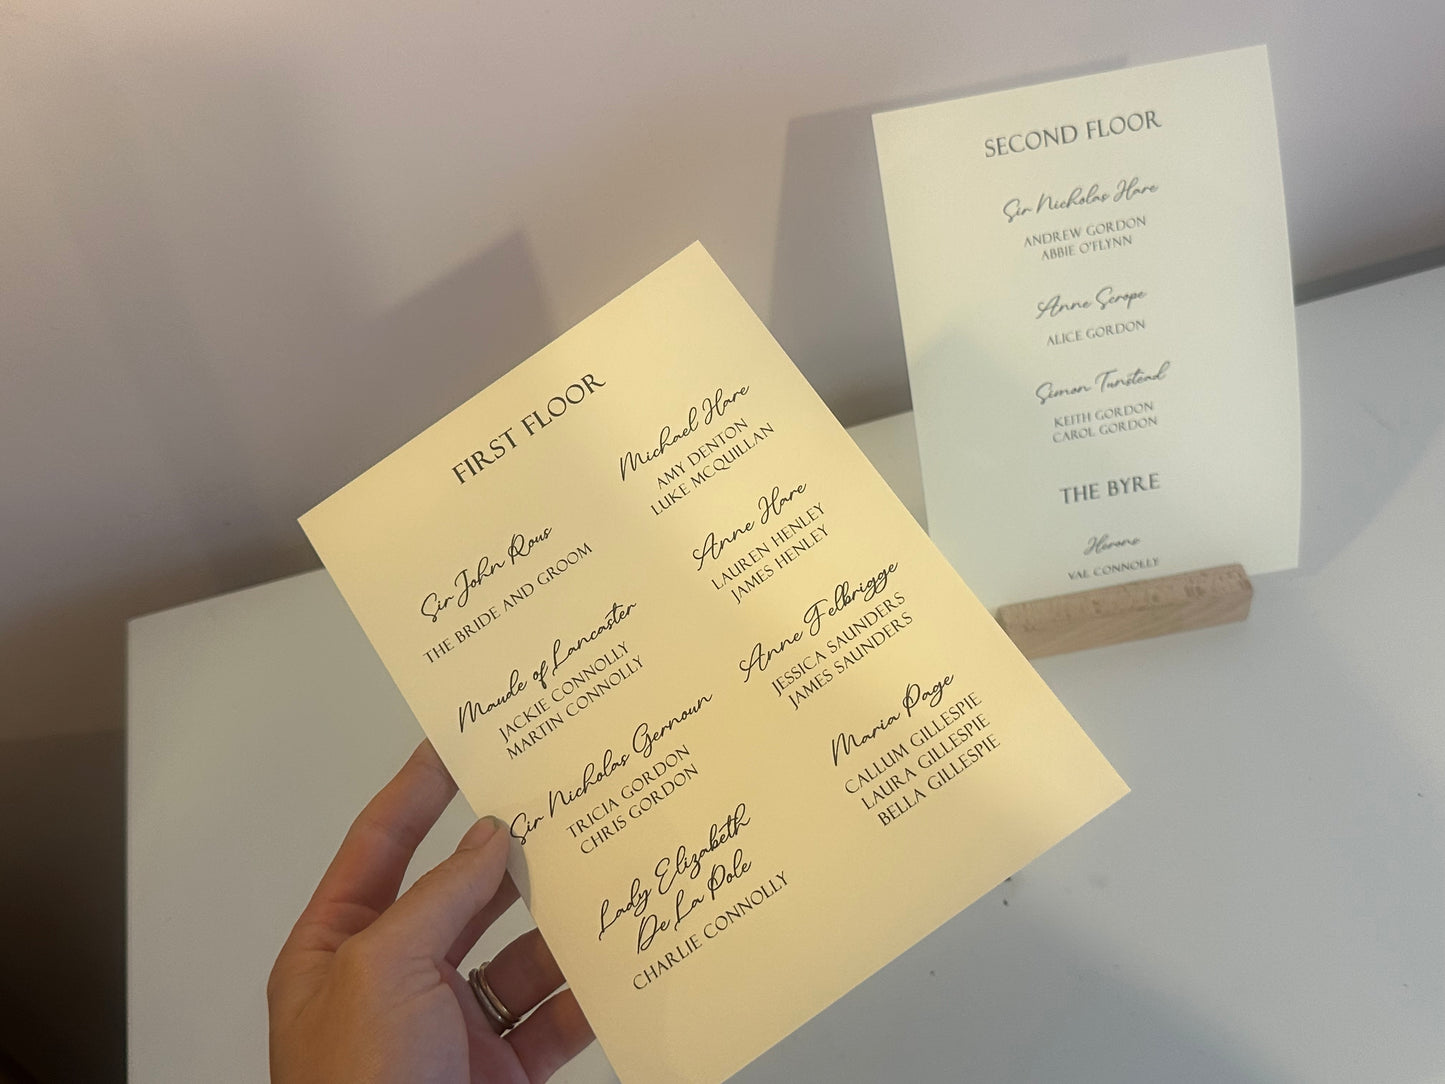 FIRST FLOOR
Sir John Rous
THE BRIDE AND GROOM
Maude of Lancaster
JACKIE CONNOLLY
MARTIN CONNOLLY
Sir Nicholas Gernoun
TRICIA GORDON
CHRIS GORDON
Lady Elizabeth
De La Pole
CHARLIE CONNOLLY
Michael Hare
AMY DENTON
LUKE MCQUILLAN
Anne Hare
LAUREN HENLEY
JAMES HENLEY
Anne Felbrigge
JESSICA SAUNDERS
JAMES SAUNDERS
Maria Page
CALLUM GILLESPIE
LAURA GILLESPIE
BELLA GILLESPIE
SECOND FLOOR
Sir Nicholas Hare
ANDREW GORDON
ABBIE O'FLYNN
Anne Scrope
ALICE GORDON
Simon Tunstead
KEITH GORDON
CAROL GORDON
THE BYRE
Herons
VAL CONNOLLY